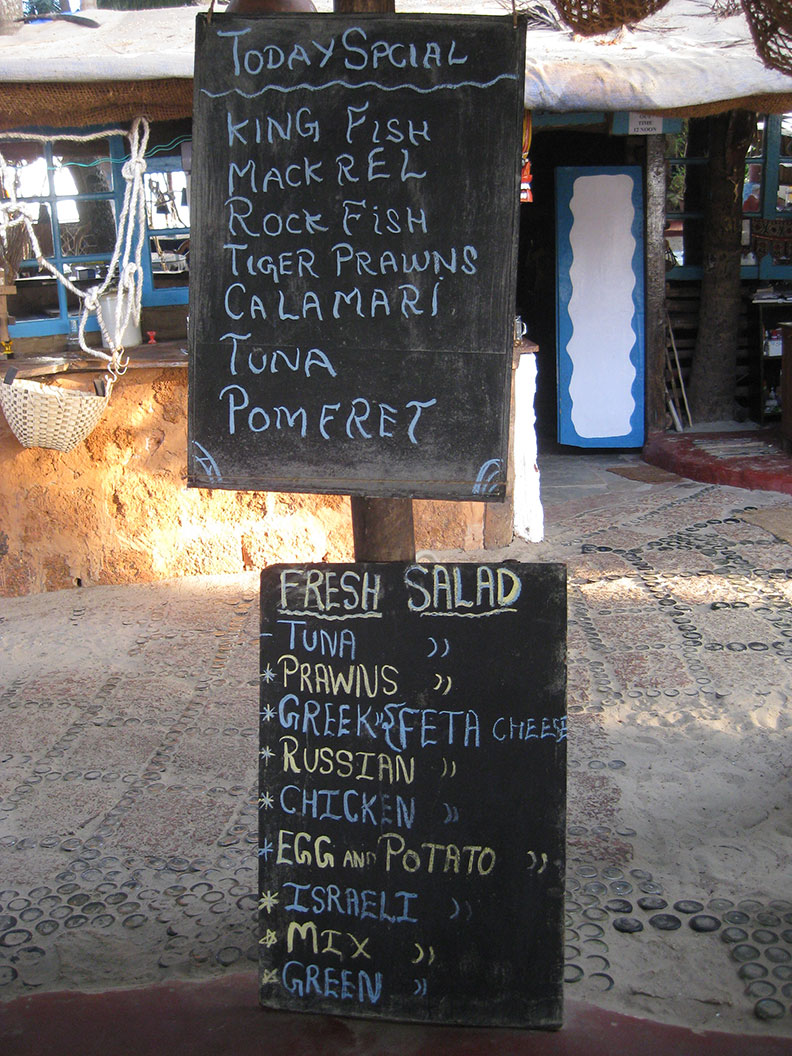 TODAY SPCIAL
KING FISH
MACKREL
ROCK FISH
TIGER PRAWNS
CALAMARI
TUNA
POMFRET
FRESH SALAD
- TUNA ))
* PRAWNS ))
* GREEK )) FETA CHEESE
* RUSSIAN ))
* CHICKEN ))
* EGG AND POTATO ))
* ISRAELI ))
* MIX ))
* GREEN ))
TIME
12 NOON